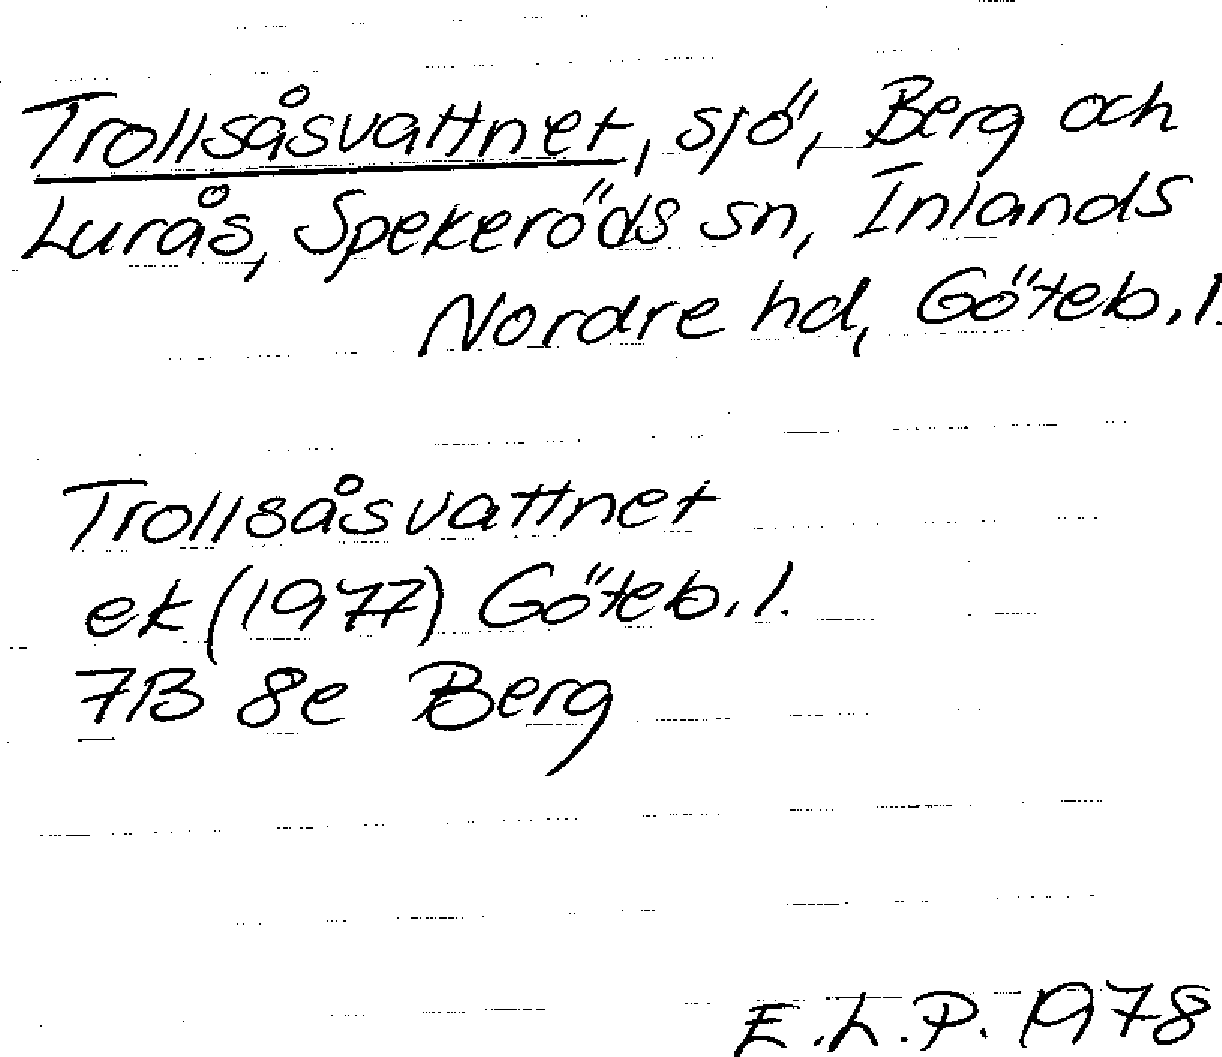 Trollsåsvattnet, sjö, Berg och
Lurås, Spekeröds sn, Inlands
Nordre hd, Göteb.l.
Trollsåsvattnet
ek (1977) Göteb.l.
7B 8e Berg
E.L.P. 1978